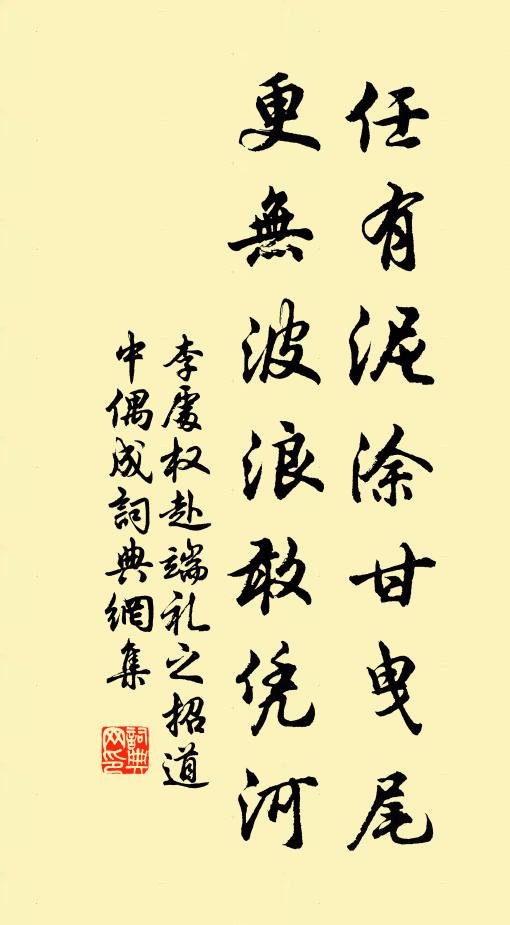 任有泥涂甘曳尾
更無波浪敢凭河
李處权赴端礼之招道
中偶成詞典網集
詞典
网印